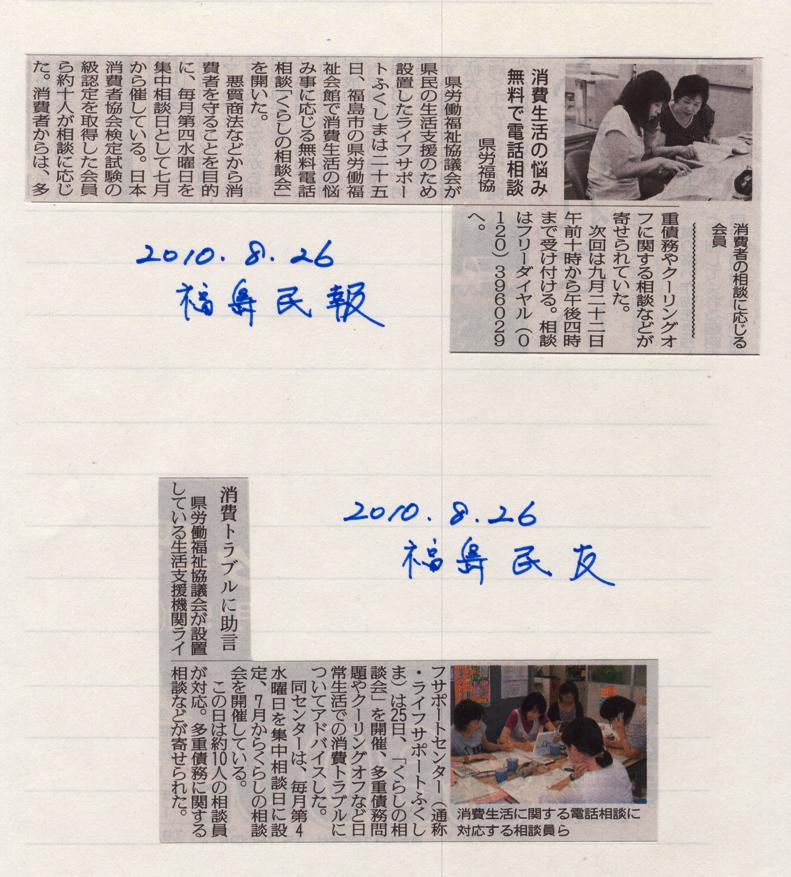 消費生活の悩み
無料で電話相談
県労福協
県労働福祉協議会が
県民の生活支援のため
設置したライフサポー
トふくしまは二十五
日、福島市の県労働福
祉会館で消費生活の悩
み事に応じる無料電話
相談「くらしの相談会」
を開いた。
悪質商法などから消
費者を守ることを目的
に、毎月第四水曜日を
集中相談日として七月
から催している。日本
消費者協会検定試験の
級認定を取得した会員
ら約十人が相談に応じ
た。消費者からは、多
重債務やクーリングオ
フに関する相談などが
寄せられていた。
次回は九月二十二日
午前十時から午後四時
まで受け付ける。相談
はフリーダイヤル(0
120)396029
へ。
消費者の相談に応じる
会員
2010.8.26
福島民報
消費トラブルに助言
県労働福祉協議会が設置
している生活支援機関ライ
フサポートセンター(通称
・ライフサポートふくし
ま)は25日、「くらしの相
談会」を開催、多重債務問
題やクーリングオフなど日
常生活での消費トラブルに
ついてアドバイスした。
同センターは、毎月第4
水曜日を集中相談日に設
定、7月からくらしの相談
会を開催している。
この日は約10人の相談員
が対応。多重債務に関する
相談などが寄せられた。
消費生活に関する電話相談に
対応する相談員ら
2010.8.26
福島民友